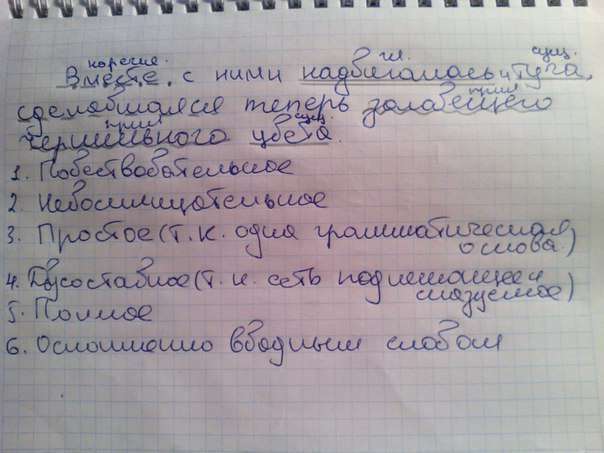 наречие. гл. сущ.
Вместе, с ними надвигалась и туча,
сделавшаяся теперь зловещего
прил.
чернильного цвета.
прил. сущ.
1. Повествовательное
2. Невосклицательное
3. Простое (т.к. одна грамматическая
основа.)
4. Двусоставное (т.к. есть подлежащее и
сказуемое)
5. Полное
6. Осложненно вводным словом